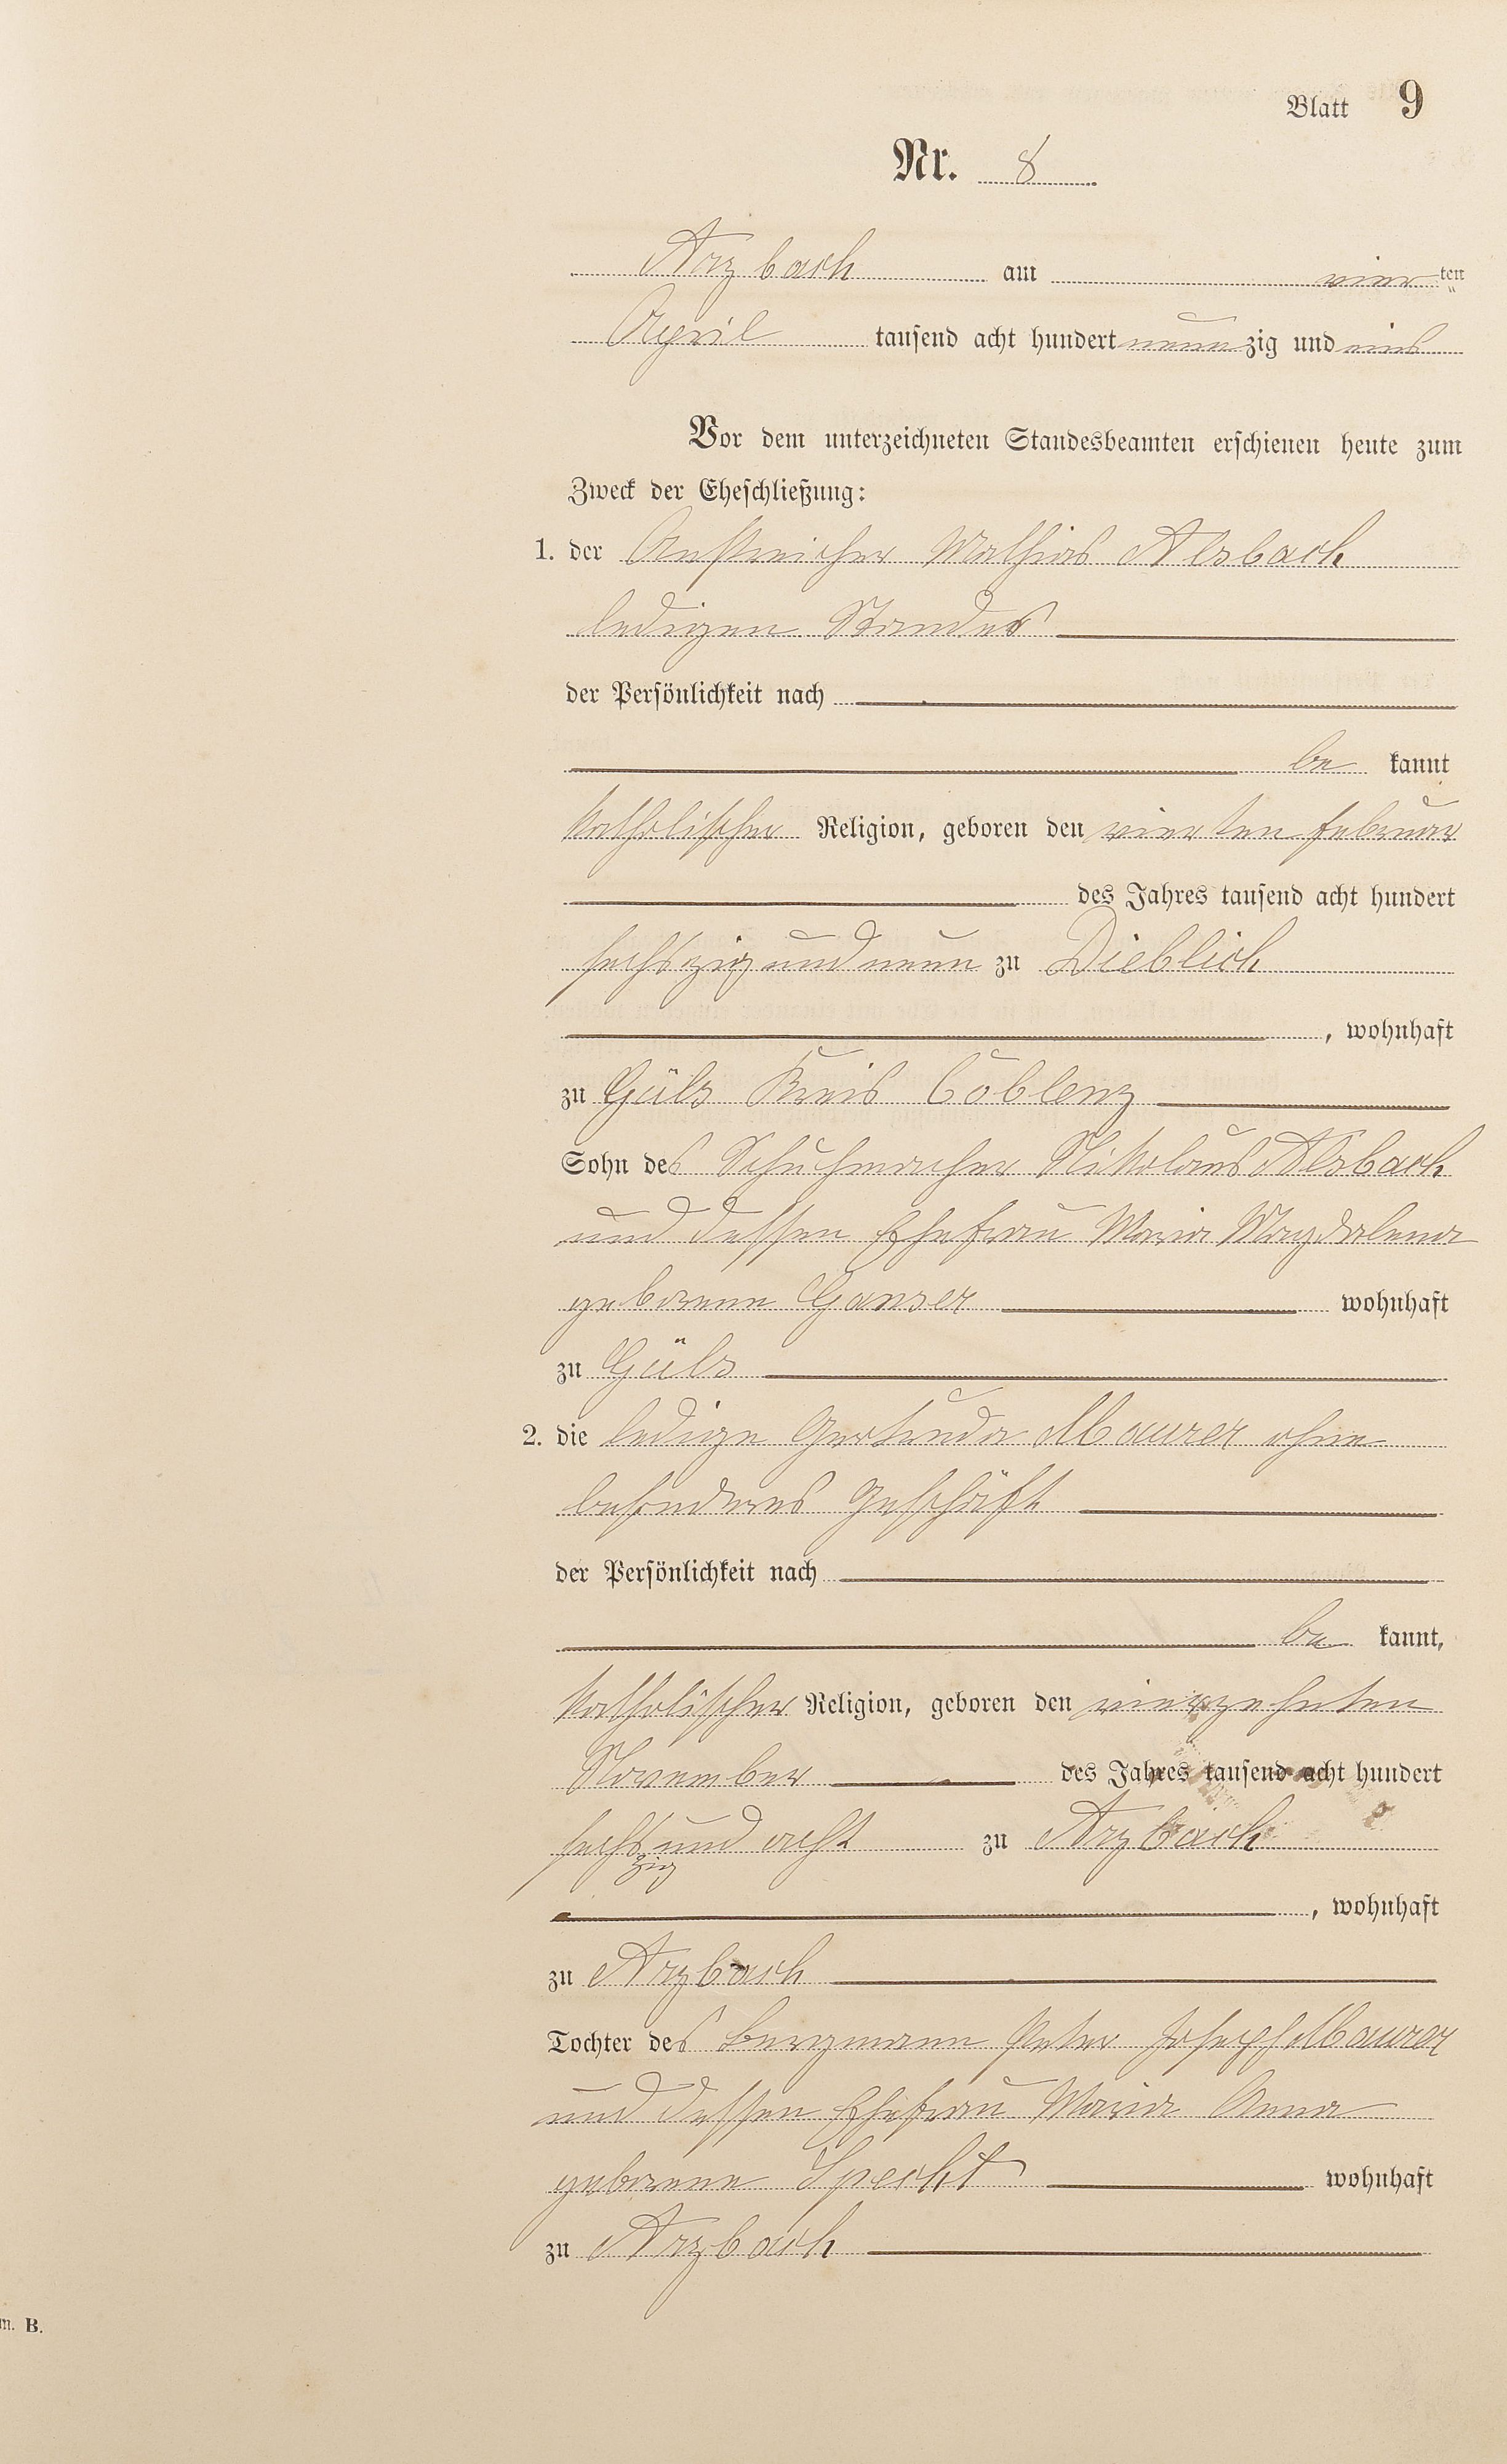 Blatt 9
Nr. 8
Arzbach am vierten
April tausend acht hundert neunzig und eins
Vor dem unterzeichneten Standesbeamten erschienen heute zum
Zweck der Eheschließung:
1. der Anstreicher Mathias Alsbach
ledigen Standes
der Persönlichkeit nach
be kannt
katholischer Religion, geboren den vierten Februar
des Jahres tausend acht hundert
sechszig und neun zu Dieblich
, wohnhaft
zu Güls Kreis Coblenz
Sohn des Schuhmacher Nikolaus Alsbach
und dessen Ehefrau Maria Magdalena
geborene Ganser wohnhaft
zu Güls
2. die ledige Gertruda Maurer ohne
besonderes Geschäft
der Persönlichkeit nach
be kannt,
katholischer Religion, geboren den vierzehnten
November des Jahres tausend acht hundert
sechszig und acht zu Arzbach
, wohnhaft
zu Arzbach
Tochter des Bergmann Peter Joseph Maurer
und dessen Ehefrau Maria Anna
geborene Specht wohnhaft
zu Arzbach
m. B.